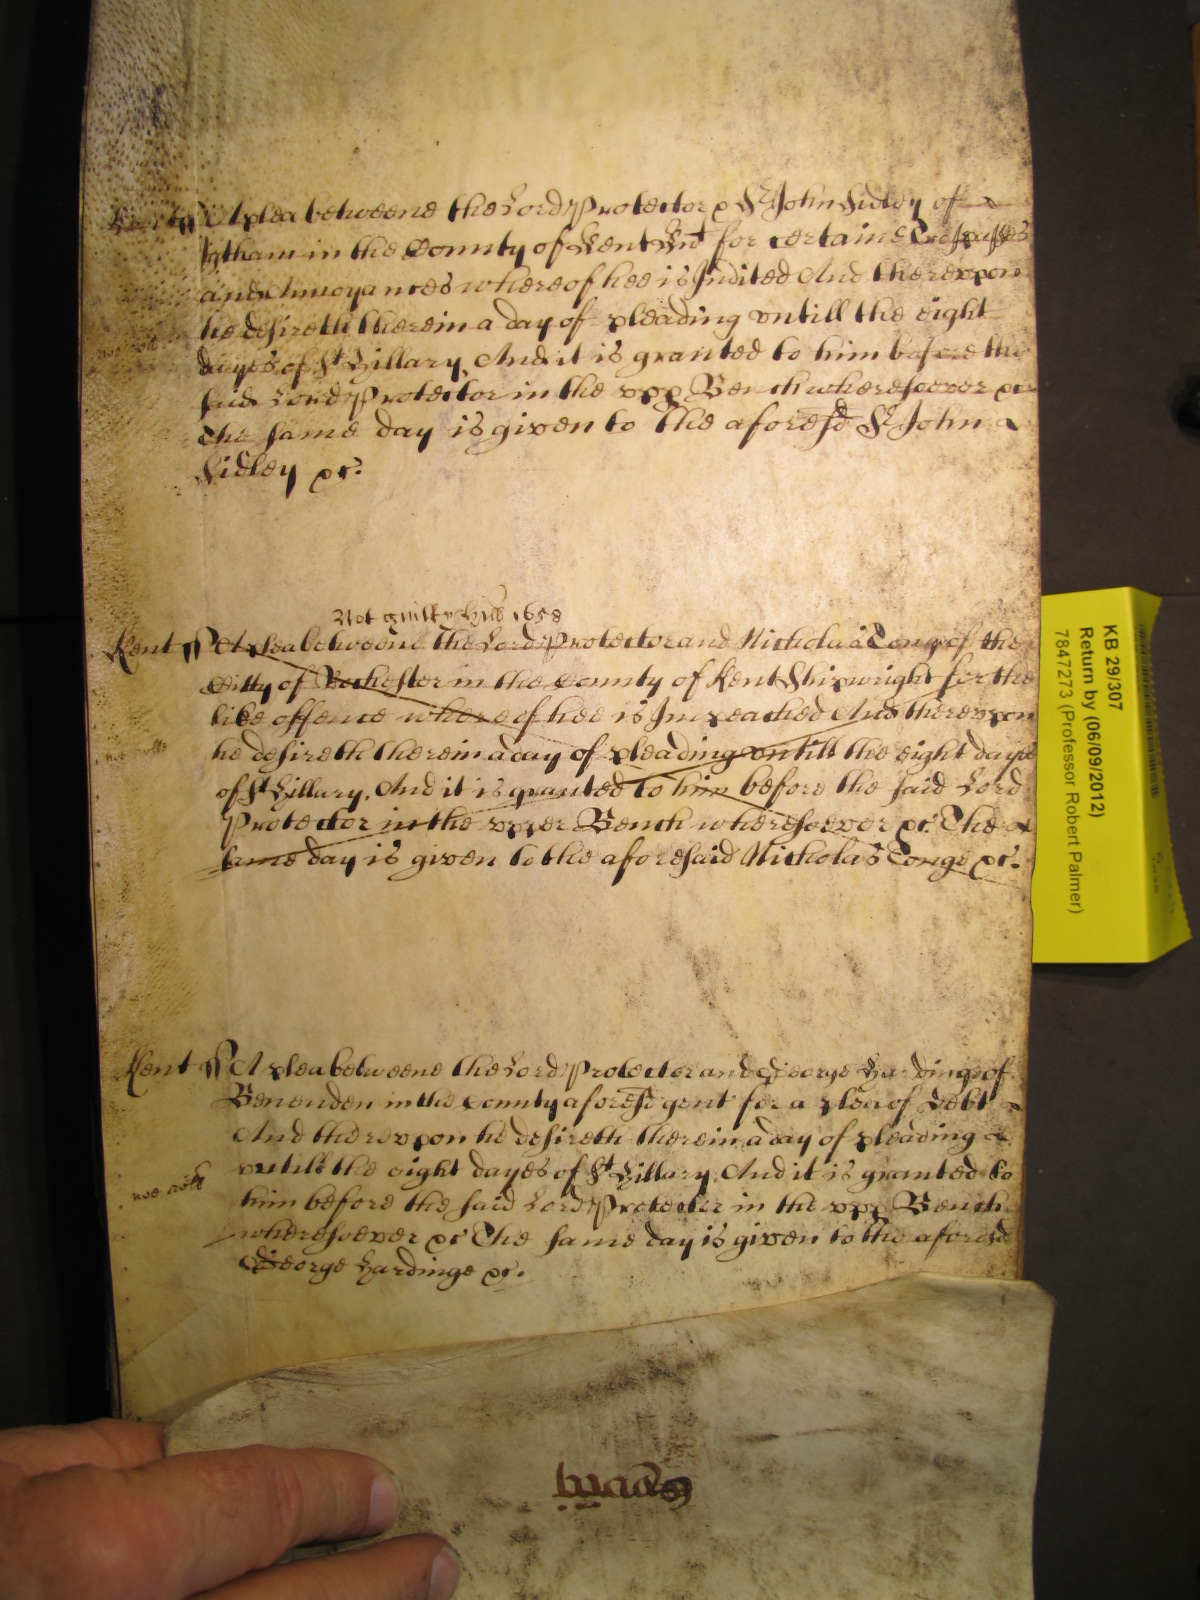 Kent ss A plea betweene the Lord Protector & Sr John Sidley of
Igtham in the County of Kent Knt for certaine Trespasses
and Annoyances whereof hee is Indited And therevpon
he desireth therein a day of pleading vntill the eight
dayes of St Hillary, And it is granted to him before the
said Lord Protector in the vpp Bench wheresoever &c
The same day is given to the aforesd Sr John
Sidley &c.
Not guilty Hill 1658
Kent ss A plea betweene the Lord Protector and Nicholas Tonge of the
Citty of Rochester in the County of Kent Shipwright for the
like offence whereof hee is Impeached And therevpon
he desireth therein a day of pleading vntill the eight dayes
of St Hillary, And it is granted to him before the said Lord
Protector in the vpper Bench wheresoever &c. The
same day is given to the aforesaid Nicholas Tonge &c.
Kent ss A plea betweene the Lord Protector and George Hardinge of
Benenden in the County aforesd gent for a plea of Debt
And therevpon he desireth therein a day of pleading
vntill the eight dayes of St Hillary, And it is granted to
noe
him before the said Lord Protector in the vpp Bench
wheresoever &c The same day is given to the aforesd
George Hardinge &c.
KB 29/307
Return by (06/09/2012)
7847273 (Professor Robert Palmer)